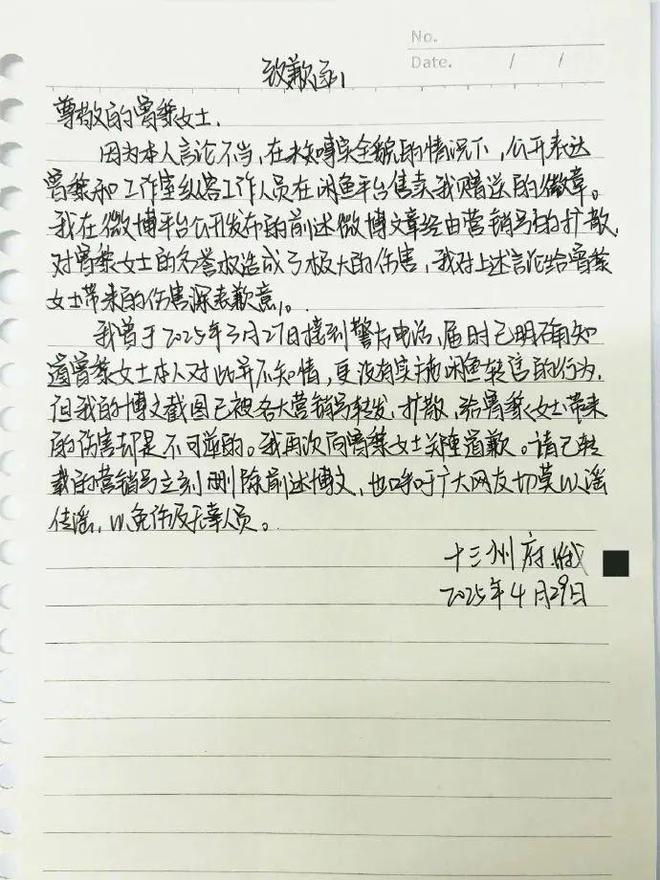 No.
Date. / /
致歉函
尊敬的曾黎女士,
因为本人言论不当,在未知晓实全貌的情况下,公开表达
曾黎和工作室纵容工作人员在闲鱼平台售卖我赠送的徽章。
我在微博平台公开发布的前述微博文章经由营销号的扩散,
对曾黎女士的名誉权造成了极大的伤害,我对上述言论给曾黎
女士带来的伤害深表歉意。
我曾于2025年3月27日接到警方电话,届时已明确知
道曾黎女士本人对此并不知情,更没有实施闲鱼转售的行为,
但我的博文截图已被各大营销号转发、扩散,给曾黎女士带来
的伤害却是不可逆的。我再次向曾黎女士郑重道歉。请已转
载的营销号立刻删除前述博文,也呼吁广大网友切莫以谣
传谣,以免伤及无辜人员。
十三州府
2025年4月29日